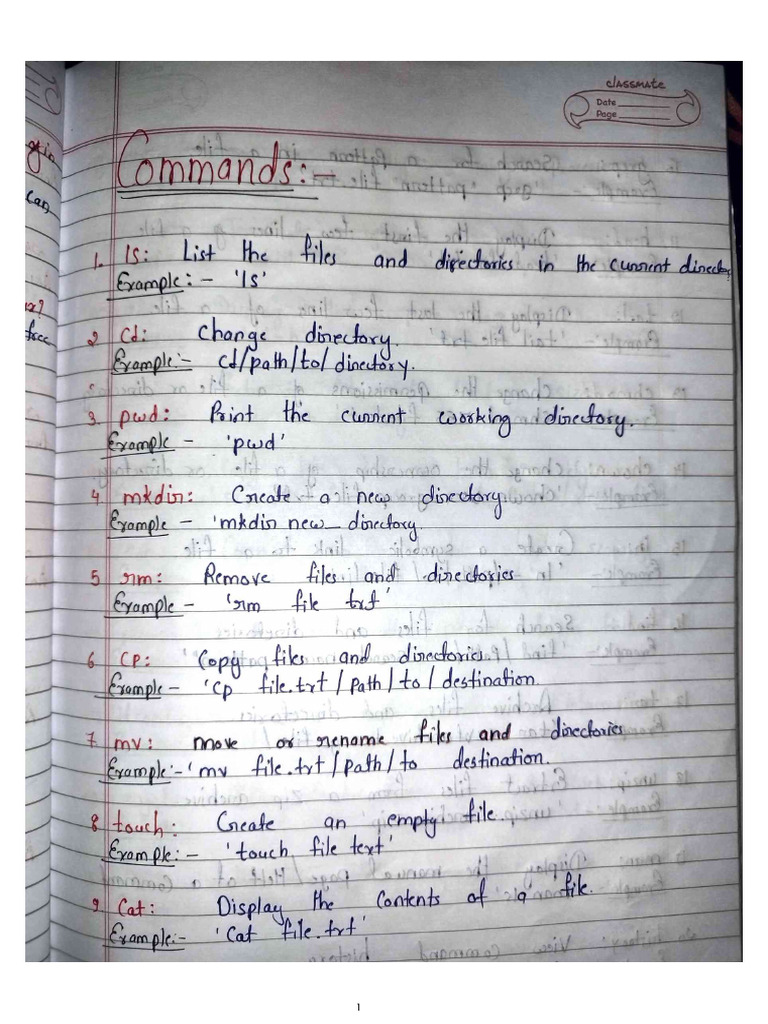 classmate
Date
Page
Commands:-
1. ls: List the files and directories in the current director
Example:- 'ls'
2 Cd: change directory.
Example:- cd/path/to/directory.
3. pwd: Print the current working directory.
Example - 'pwd'
4. mkdir: Create a new directory.
Example - 'mkdir new_directory.
5 rm: Remove files and directories
Example - 'rm file txt'
6 CP: Copy files and directories
Example - 'cp file.txt/path/to/destination.
7. mv: move or rename files and directories
Example:- 'mv file.txt/path/to destination.
8 touch: Create an empty file.
Example:- 'touch file text'
9. Cat: Display the contents of a file.
Example:- 'Cat file.txt'
1